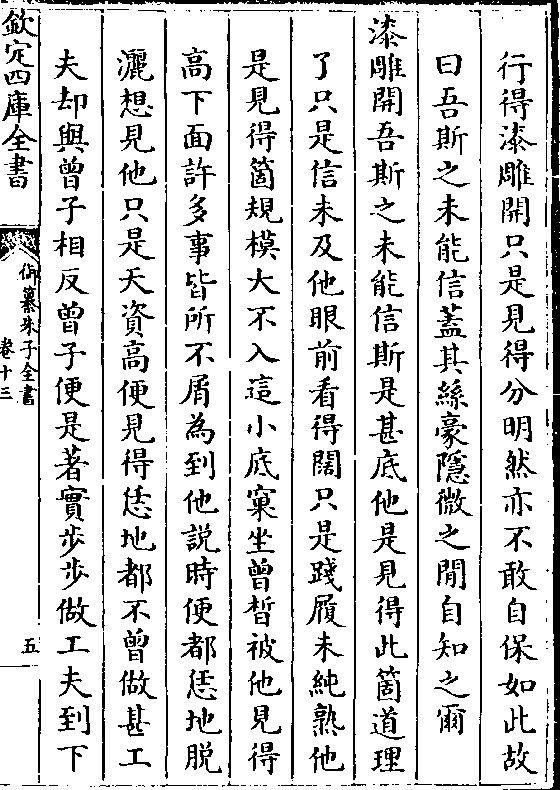 行得漆雕開只是見得分明然亦不敢自保如此故
曰吾斯之未能信蓋其絲豪隱微之間自知之爾
漆雕開吾斯之未能信斯是甚底他是見得此箇道理
了只是信未及他眼前看得闊只是踐履未純熟他
是見得箇規模大不入這小底窠坐曾晳被他見得
高下面許多事皆所不屑為到他説時便都恁地脱
灑想見他只是天資高便見得恁地都不曾做甚工
夫却與曾子相反曾子便是著實步步做工夫到下
欽定四庫全書
御纂朱子全書
卷十三
五